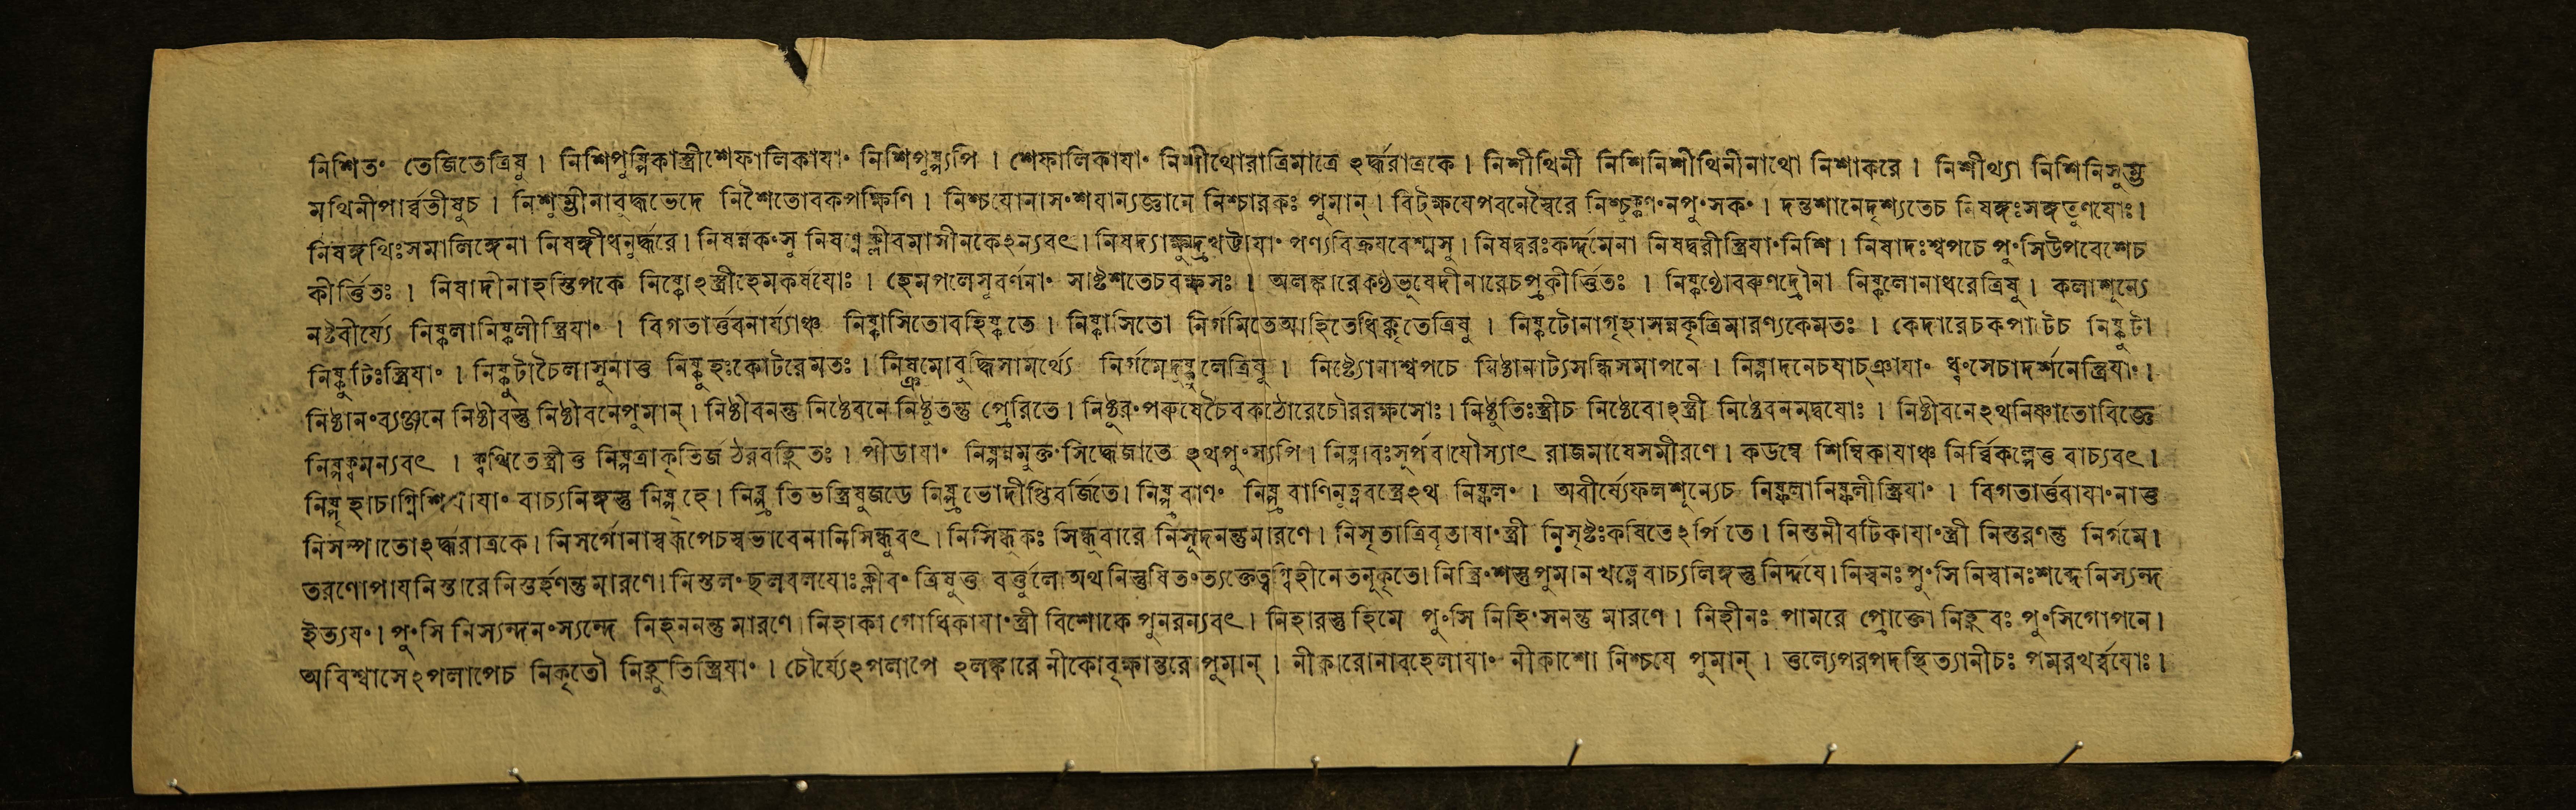 নিশিতং তেজিতেত্রিষু। নিশিপুষ্পিকাস্ত্রীশেফালিকাযাং নিশিপুষ্প্যপি । শেফালিকাযাং নিশীথোরাত্রিমাত্রে ঽর্দ্ধরাত্রকে । নিশীথিনী নিশিনিশীথিনীনাথো নিশাকরে । নিশীথ্যা নিশিনিসুম্ভ
মথিনীপার্ব্বতীষুচ । নিশুম্ভীনাবুদ্ধভেদে নিশৈতোবকপক্ষিণি । নিশ্চযোনাসংশযান্যজ্ঞানে নিশ্চারকঃ পুমান্ । বিট্ক্ষযেপবনেস্বৈরে নিশ্চুক্কণংনপুংসকং । দন্তশানেদৃশ্যতেচ নিষঙ্গঃসঙ্গতূণযোঃ।
নিষঙ্গথিঃসমালিঙ্গেনা নিষঙ্গীধনুর্দ্ধরে। নিষন্নকংসু নিষণ্ণক্লীবমাসীনকেঽন্যবৎ। নিষদ্যাক্ষুদ্রখট্টাযাং পণ্যবিক্রযবেশ্মসু। নিষদ্বরঃকর্দ্দমেনা নিষদ্বরীস্ত্রিযাংনিশি । নিষাদঃশ্বপচে পুংসিউপবেশেচ
কীর্ত্তিতঃ । নিষাদীনাহস্তিপকে নিষ্কোঽস্ত্রীহেমকর্ষযোঃ । হেমপলেসুবর্ণনাং সাষ্টশতেচবক্ষসঃ । অলঙ্কারেকণ্ঠভূষেদীনারেচপ্রকীর্ত্তিতঃ । নিষ্কণ্ঠোবরুণদ্রৌনা নিষ্কলোনাধরেত্রিষু । কলাশূন্যে
নষ্টবীর্য্যে নিষ্কলানিষ্কলীস্ত্রিযাং । বিগতার্ত্তবনার্য্যাঞ্চ নিষ্কাসিতোবহিষ্কৃতে । নিষ্কাসিতো নির্গমিতেআহিতেধিক্কৃতেত্রিষু । নিষ্কুটোনাগৃহাসন্নকৃত্রিমারণ্যকেমতঃ । কেদারেচকপাটেচ নিষ্কুটা
নিষ্কুটিঃস্ত্রিযাং । নিষ্কুটাচৈলাসুনাতু নিষ্কুহঃকোটরেমতঃ । নিষ্ক্রমোবুদ্ধিসামর্থ্যে নির্গমেদুষ্কুলেত্রিষু । নিষ্ট্যোনাশ্বপচে নিষ্ঠানাট্যসন্ধিসমাপনে । নিষ্পাদনেচযাচ্ঞাযাং ধ্বংসেচাদর্শনেস্ত্রিযাং ।
নিষ্ঠানংব্যঞ্জনে নিষ্ঠীবস্তু নিষ্ঠীবনেপুমান্ । নিষ্ঠীবনন্তু নিষ্ঠেবনে নিষ্ঠুতন্তু প্রেরিতে । নিষ্ঠুরংপরুষেচৈবকঠোরেচৌররক্ষসোঃ । নিষ্ঠুতিঃস্ত্রীচ নিষ্ঠেবোঽস্ত্রী নিষ্ঠেবনমদ্বযোঃ । নিষ্ঠীবনেঽথনিষ্ণাতোবিজ্ঞে
নিষ্পক্বমন্যবৎ । ক্বথিতেস্ত্রীতু নিষ্পত্রাকৃতির্জ ঠরবহ্নিতঃ । পীডাযাং নিষ্পন্নমুক্তংসিদ্ধেজাতে ঽথপুংস্যপি । নিষ্পাবঃসূর্পবাযৌস্যাৎ রাজমাষেসমীরণে । কডম্বে শিম্বিকাযাঞ্চ নির্ব্বিকল্পেতু বাচ্যবৎ ।
বাচ্যলিঙ্গস্তু নিষ্পৃহে । অবীর্য্যেফলশূন্যেচ নিষ্ফলানিষ্ফলীস্ত্রিযাং । বিগতার্ত্তবাযাংনাতু
নিসম্পাতোঽর্দ্ধরাত্রকে। নিসর্গোনাস্বরূপেচস্বভাবেনানিসিন্ধুবৎ। নিসিন্ধুকঃ সিন্ধুবারে নিসূদনন্তুমারণে। নিসৃতাত্রিবৃতাযাংস্ত্রী নিসৃষ্টঃকষিতেঽর্পিতে । নিস্তনীবটিকাযাংস্ত্রী নিস্তরণন্তু নির্গমে।
তরণোপাযনিস্তারেনিস্তর্হণন্তুমারণে। নিস্তলংছলবলযোঃক্লীবং ত্রিষুতু বর্ত্তুলে।অথনিস্তুষিতংত্যক্তেত্বগ্বিহীনেতনূকৃতে। নিস্ত্রিংশস্তুপুমানখড্গেবাচ্যলিঙ্গস্তুনির্দ্দযে। নিস্বনঃপুংসি নিস্বানঃশব্দেনিস্যন্দ
ইত্যযং। পুংসি নিস্যন্দনংস্যন্দে নিহননন্তুমারণে। নিহাকা গোধিকাযাংস্ত্রী বিশোকেপুনরন্যবৎ। নিহারস্তুহিমে পুংসি নিহিংসনন্তু মারণে । নিহীনঃ পামরে প্রোক্তো নিহ্নবঃ পুংসিগোপনে।
অবিশ্বাসেঽপলাপেচ নিকৃতৌ নিহ্নুতিস্ত্রিযাং । চৌর্য্যেঽপলাপে ঽলঙ্কারেনীকোবৃক্ষান্তরেপুমান্ । নীকারোনাবহেলাযাং নীকাশো নিশ্চযে পুমান্ । তুল্যেপরপদস্থিত্যানীচঃ পমরখর্ব্বযোঃ।